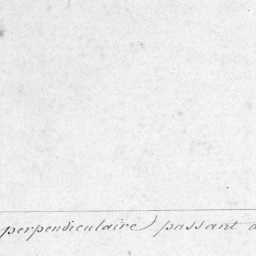 perpendiculaire) passant